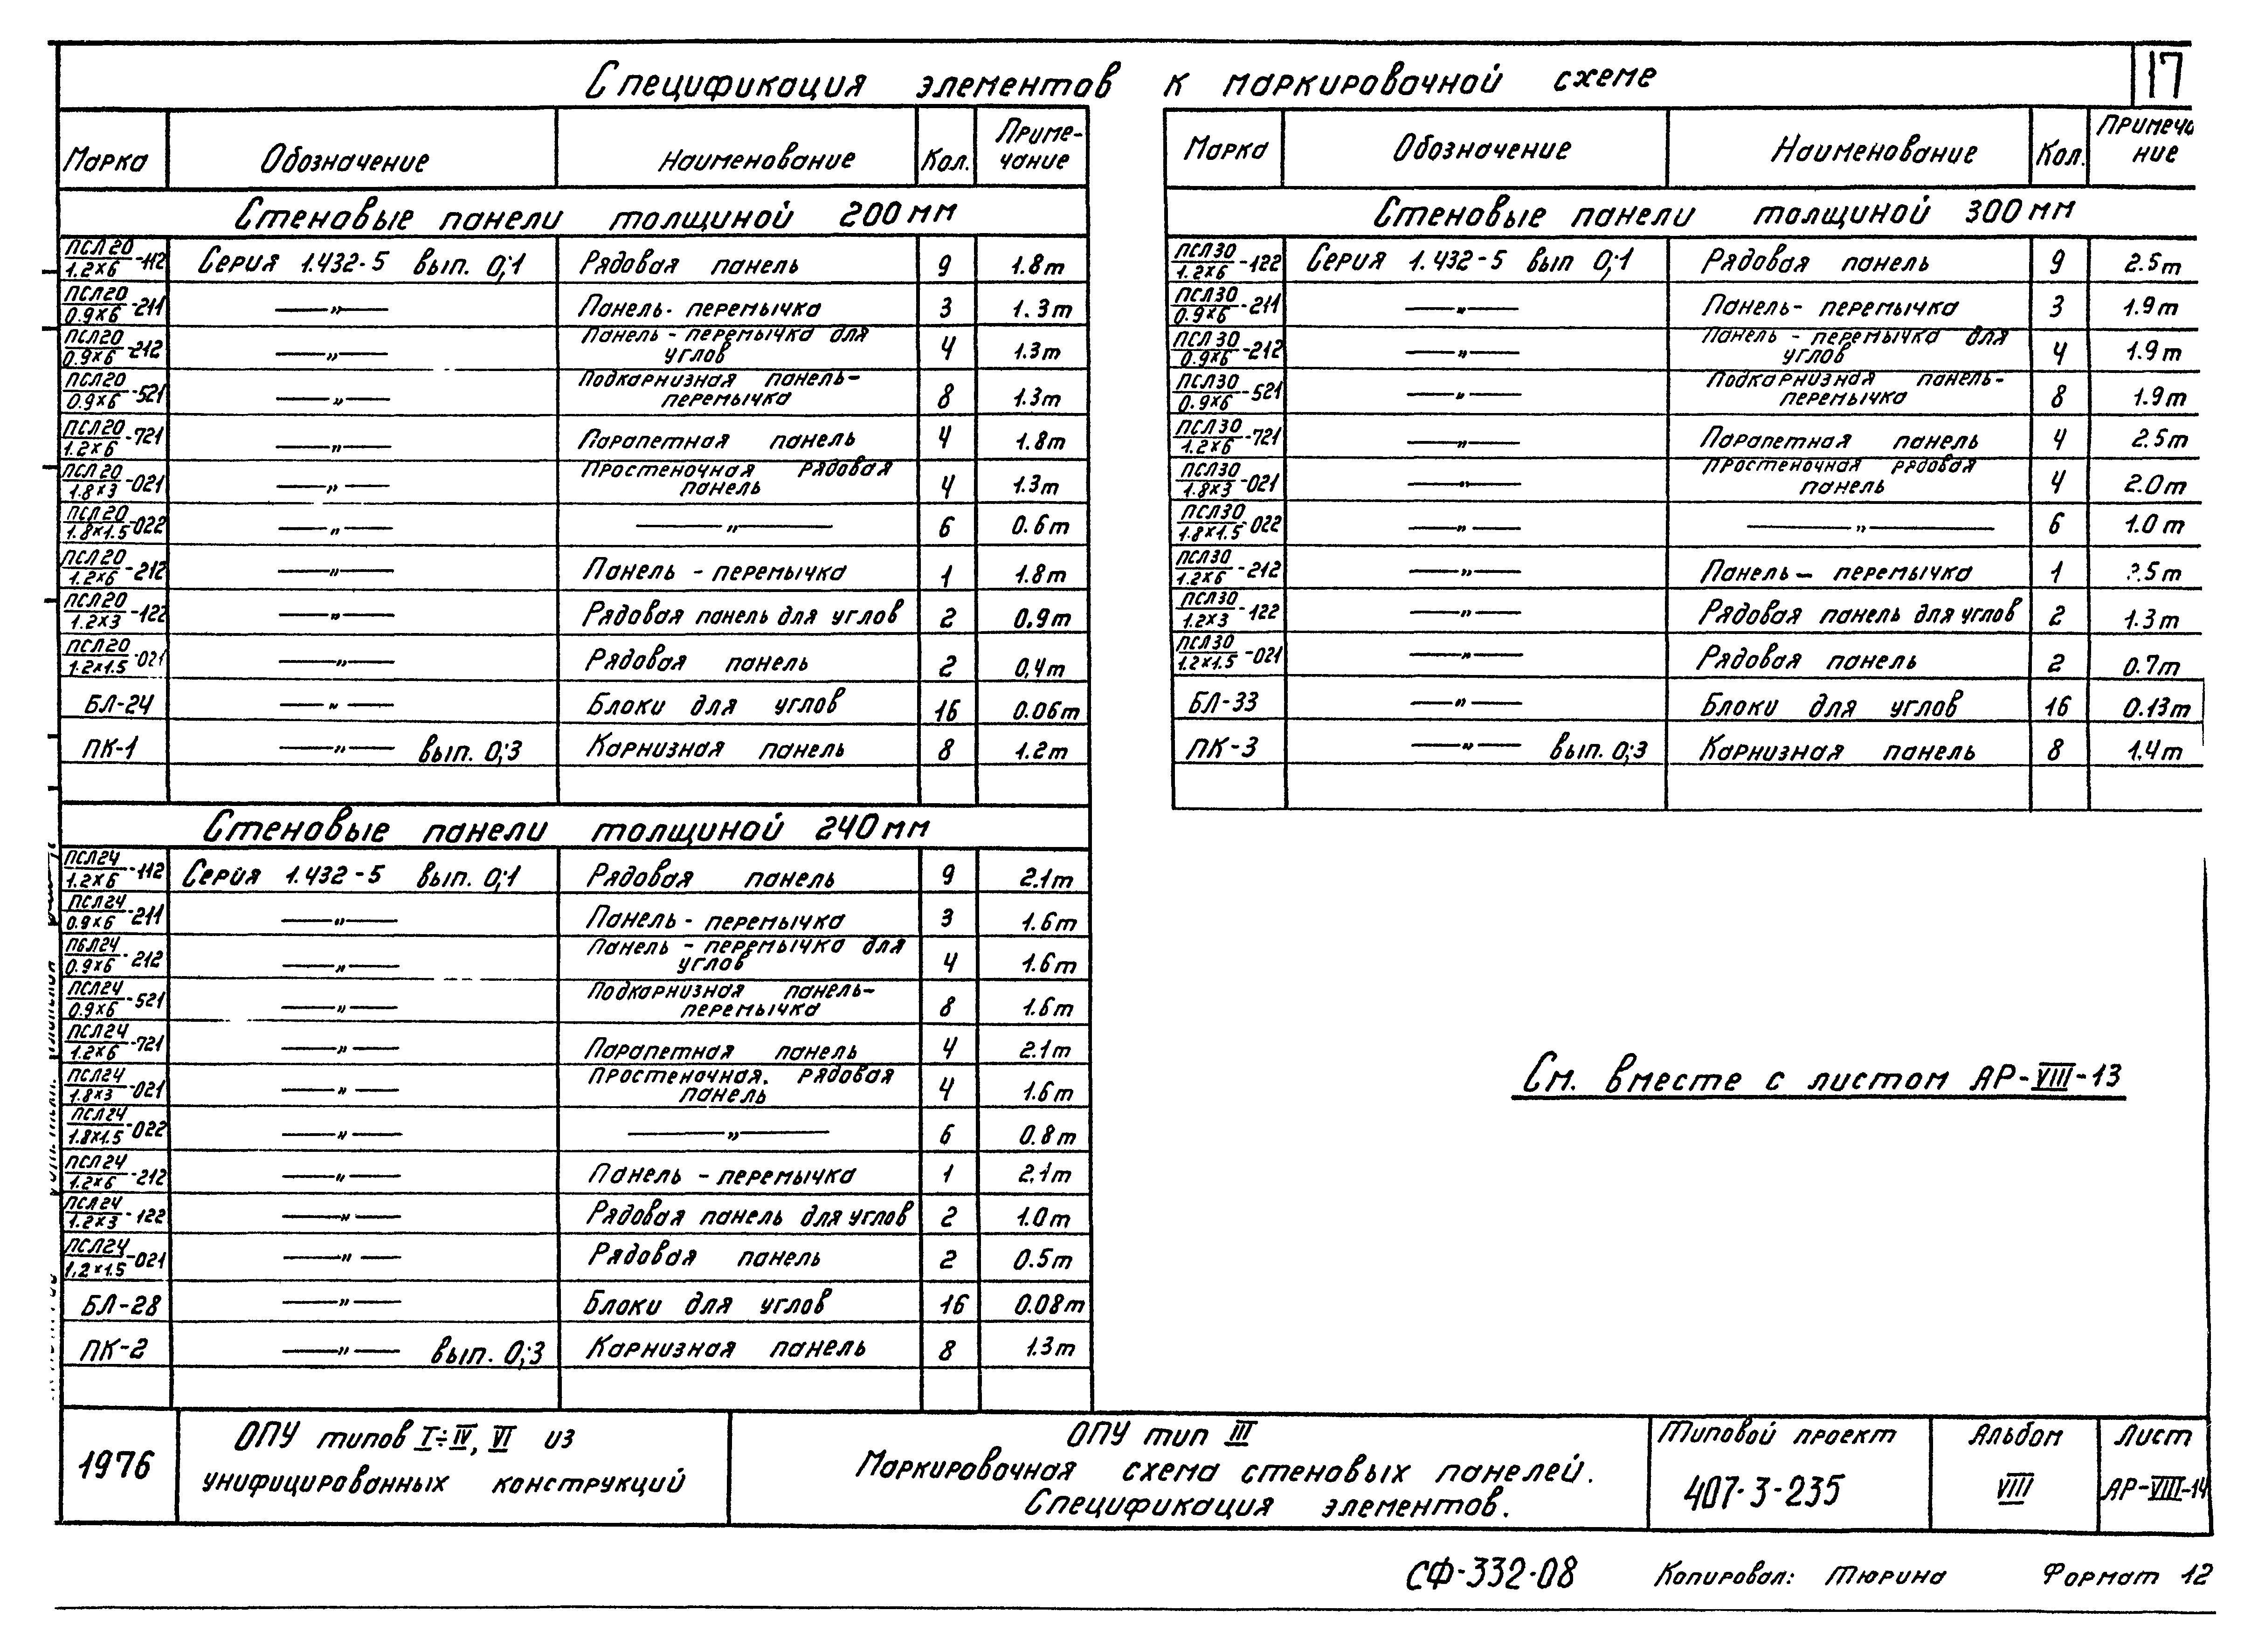 Спецификация элементов к маркировочной схеме
17
Марка Обозначение Наименование Кол. Приме-чание
Стеновые панели толщиной 200мм
ПСЛ20/1.2×6-112 Серия 1.432-5 вып. 0;1 Рядовая панель 9 1.8т
ПСЛ20/0.9×6-211 —„— Панель-перемычка 3 1.3т
ПСЛ20/0.9×6-212 —„— Панель-перемычка для углов 4 1.3т
ПСЛ20/0.9×6-521 —„— Подкарнизная панель-перемычка 8 1.3т
ПСЛ20/1.2×6-721 —„— Парапетная панель 4 1.8т
ПСЛ20/1.8×3-021 —„— Простеночная рядовая панель 4 1.3т
ПСЛ20/1.8×1.5-022 —„— —„— 6 0.6т
ПСЛ20/1.2×6-212 —„— Панель-перемычка 1 1.8т
ПСЛ20/1.2×3-122 —„— Рядовая панель для углов 2 0,9т
ПСЛ20/1.2×1.5-021 —„— Рядовая панель 2 0,4т
БЛ-24 —„— Блоки для углов 16 0.06т
ПК-1 —„— вып. 0;3 Карнизная панель 8 1.2т
Стеновые панели толщиной 240мм
ПСЛ24/1.2×6-112 Серия 1.432-5 вып. 0;1 Рядовая панель 9 2.1т
ПСЛ24/0.9×6-211 —„— Панель-перемычка 3 1.6т
ПБЛ24/0.9×6-212 —„— Панель-перемычка для углов 4 1.6т
ПСЛ24/0.9×6-521 —„— Подкарнизная панель-перемычка 8 1.6т
ПСЛ24/1.2×6-721 —„— Парапетная панель 4 2.1т
ПСЛ24/1.8×3-021 —„— Простеночная. рядовая панель 4 1.6т
ПСЛ24/1.8×1.5-022 —„— —„— 6 0.8т
ПСЛ24/1.2×6-212 —„— Панель-перемычка 1 2.1т
ПСЛ24/1.2×3-122 —„— Рядовая панель для углов 2 1.0т
ПСЛ24/1.2×1.5-021 —„— Рядовая панель 2 0.5т
БЛ-28 —„— Блоки для углов 16 0.08т
ПК-2 —„— вып. 0;3 Карнизная панель 8 1.3т
Марка Обозначение Наименование Кол. Примеча ние
Стеновые панели толщиной 300мм
ПСЛ30/1.2×6-122 Серия 1.432-5 вып 0;1 Рядовая панель 9 2.5т
ПСЛ30/0.9×6-211 —„— Панель-перемычка 3 1.9т
ПСЛ30/0.9×6-212 —„— Панель-перемычка для углов 4 1.9т
ПСЛ30/0.9×6-521 —„— Подкарнизная панель-перемычка 8 1.9т
ПСЛ30/1.2×6-721 —„— Парапетная панель 4 2.5т
ПСЛ30/1.8×3-021 —„— Простеночная рядовая панель 4 2.0т
ПСЛ30/1.8×1.5-022 —„— —„— 6 1.0т
ПСЛ30/1.2×6-212 —„— Панель-перемычка 1 .5т
ПСЛ30/1.2×3-122 —„— Рядовая панель для углов 2 1.3т
ПСЛ30/1.2×1.5-021 —„— Рядовая панель 2 0.7т
БЛ-33 —„— Блоки для углов 16 0.13т
ПК-3 —„— вып. 0;3 Карнизная панель 8 1.4т
См. вместе с листом АР-VIII-13
1976
ОПУ типов I÷IV, VI из
унифицированных конструкций
ОПУ тип III
Маркировочная схема стеновых панелей.
Спецификация элементов.
Типовой проект
407-3-235
Альбом
VIII
Лист
АР-VIII-14
СФ-332-08 Копировал: Тюрина Формат 12